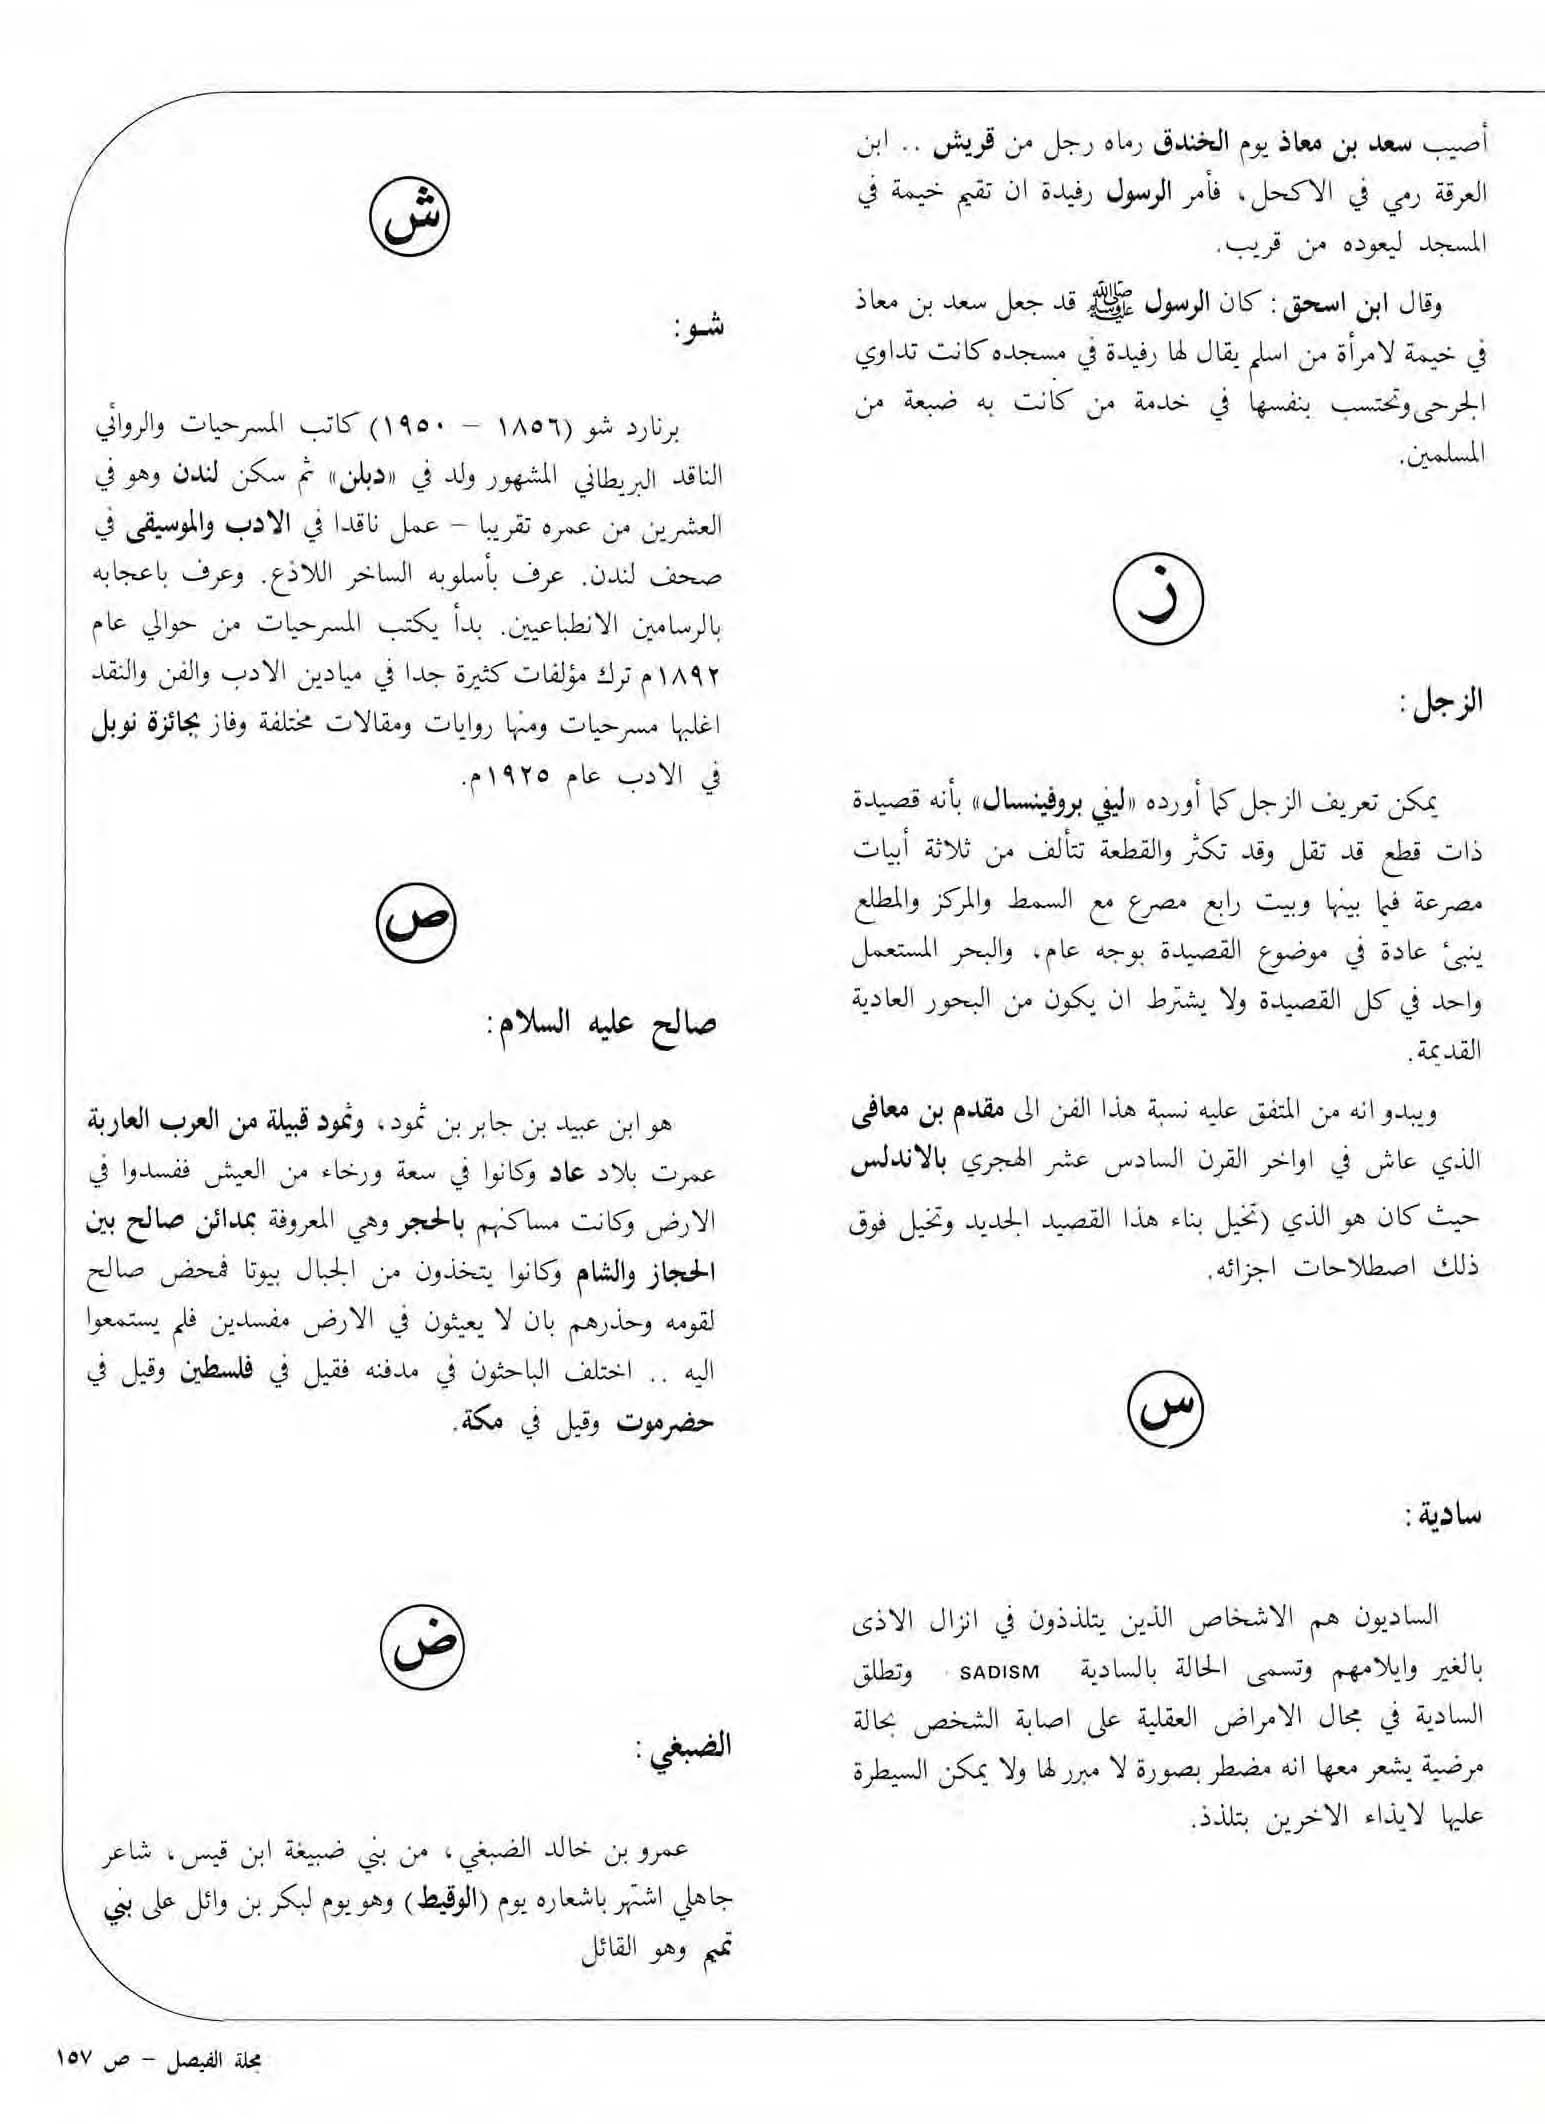 أصيب سعد بن معاذ يوم الخندق رماه رجل من قريش .. ابن
العرقة رمي في الاكحل، فأمر الرسول رفيدة ان تقيم خيمة في
المسجد ليعوده من قريب.
وقال ابن اسحق: كان الرسول ﷺ قد جعل سعد بن معاذ
في خيمة لامرأة من اسلم يقال لها رفيدة في مسجده كانت تداوي
الجرحى وتحتسب بنفسها في خدمة من كانت به ضبعة من
المسلمين.
ز
الزجل:
يمكن تعريف الزجل كما أورده «ليفي بروفينسال» بأنه قصيدة
ذات قطع قد تقل وقد تكثر والقطعة تتألف من ثلاثة أبيات
مصرعة فيما بينها وبيت رابع مصرع مع السمط والمركز والمطلع
ينبئ عادة في موضوع القصيدة بوجه عام، والبحر المستعمل
واحد في كل القصيدة ولا يشترط ان يكون من البحور العادية
القديمة.
ويبدو انه من المتفق عليه نسبة هذا الفن الى مقدم بن معافى
الذي عاش في اواخر القرن السادس عشر الهجري بالاندلس
حيث كان هو الذي (تخيل بناء هذا القصيد الجديد وتخيل فوق
ذلك اصطلاحات اجزائه.
س
سادية:
الساديون هم الاشخاص الذين يتلذذون في انزال الاذى
بالغير وايلامهم وتسمى الحالة بالسادية SADISM وتطلق
السادية في مجال الامراض العقلية على اصابة الشخص بحالة
مرضية يشعر معها انه مضطر بصورة لا مبرر لها ولا يمكن السيطرة
عليها لايذاء الاخرين بتلذذ.
ش
شو:
برنارد شو (١٨٥٦ – ١٩٥٠) كاتب المسرحيات والروائي
الناقد البريطاني المشهور ولد في «دبلن» ثم سكن لندن وهو في
العشرين من عمره تقريبا – عمل ناقدا في الادب والموسيقى في
صحف لندن. عرف بأسلوبه الساخر اللاذع. وعرف باعجابه
بالرسامين الانطباعيين. بدأ يكتب المسرحيات من حوالي عام
١٨٩٢م ترك مؤلفات كثيرة جدا في ميادين الادب والفن والنقد
اغلبها مسرحيات ومنها روايات ومقالات مختلفة وفاز بجائزة نوبل
في الادب عام ١٩٢٥م.
ص
صالح عليه السلام:
هو ابن عبيد بن جابر بن ثمود، وثمود قبيلة من العرب العاربة
عمرت بلاد عاد وكانوا في سعة ورخاء من العيش ففسدوا في
الارض وكانت مساكنهم بالحجر وهي المعروفة بمدائن صالح بين
الحجاز والشام وكانوا يتخذون من الجبال بيوتا فمحض صالح
لقومه وحذرهم بان لا يعيثون في الارض مفسدين فلم يستمعوا
اليه .. اختلف الباحثون في مدفنه فقيل في فلسطين وقيل في
حضرموت وقيل في مكة.
ض
الضبغي:
عمرو بن خالد الضبغي، من بني ضبيغة ابن قيس، شاعر
جاهلي اشتهر باشعاره يوم (الوقيط) وهو يوم لبكر بن وائل على بني
تميم وهو القائل
مجلة الفيصل – ص ١٥٧